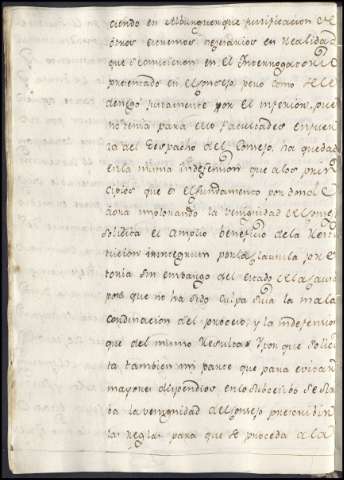 ciendo en Alburquerque justificacion de
otros extremos necesarios en realidad
que se contienen en el Interrogatorio
presentado en el Consejo pero como se le
denego justamente por el inferior, que
no tenia para ello facultades en fuer
za del despacho del Consejo, ha quedado
en la misma indefension que a los prin
cipios que es el fundamento por donde
aora implorando la venignidad del Consejo
solicita el amplio beneficio de la Resti
tucion in integrum por la clausula
sin embargo del estado de la causa
pues que no ha sido culpa suia la mala
cordinacion del proceso, y la indefension
que del mismo resulta: Y por que solici
ta tambien mi parte que para evitar
maiores dispendios en lo subcesibo se sir
ba la venignidad del Consejo prescribir
la regla para que se proceda a la